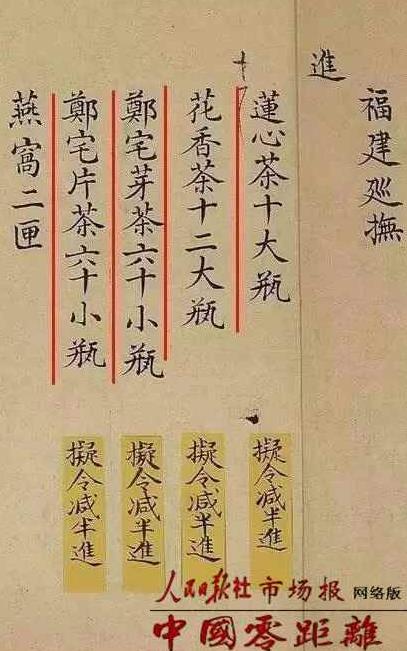 福建廵撫
進
蓮心茶十大瓶
擬令减半進
花香茶十二大瓶
擬令减半進
鄭宅芽茶六十小瓶
擬令减半進
鄭宅片茶六十小瓶
擬令减半進
燕窩二匣
人民日报社市场报 网络版
中國零距離